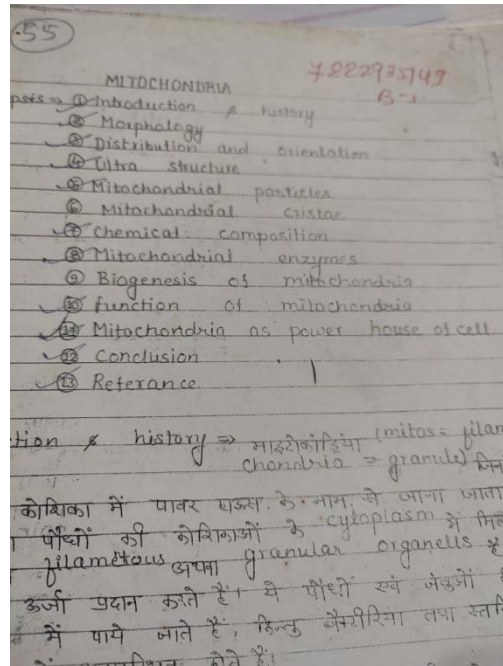 55
7222935749
B-1
MITOCHONDRIA
psis ⇒ ① Introduction & history
② Morphology
③ Distribution and orientation
④ Ultra structure
⑤ Mitochondrial particles
⑥ Mitochondrial cristae
⑦ Chemical composition
⑧ Mitochondrial enzymes
⑨ Biogenesis of mitochondria
⑩ function of mitochondria
⑪ Mitochondria as power house of cell
⑫ Conclusion
⑬ Referance
tion & history ⇒ माइटोकोंड्रिया (mitos = filam
chondria = granule) जिन
कोशिका में पावर हाऊस के नाम से जाना जाता
पौधों की कोशिकाओं के cytoplasm में मि
filametous अथवा granular organells है
ऊर्जा प्रदान करते हैं। ये पौधों एवं जंतुओं
में पाये जाते हैं, किन्तु बैक्टीरिया तथा स्त
होते हैं।